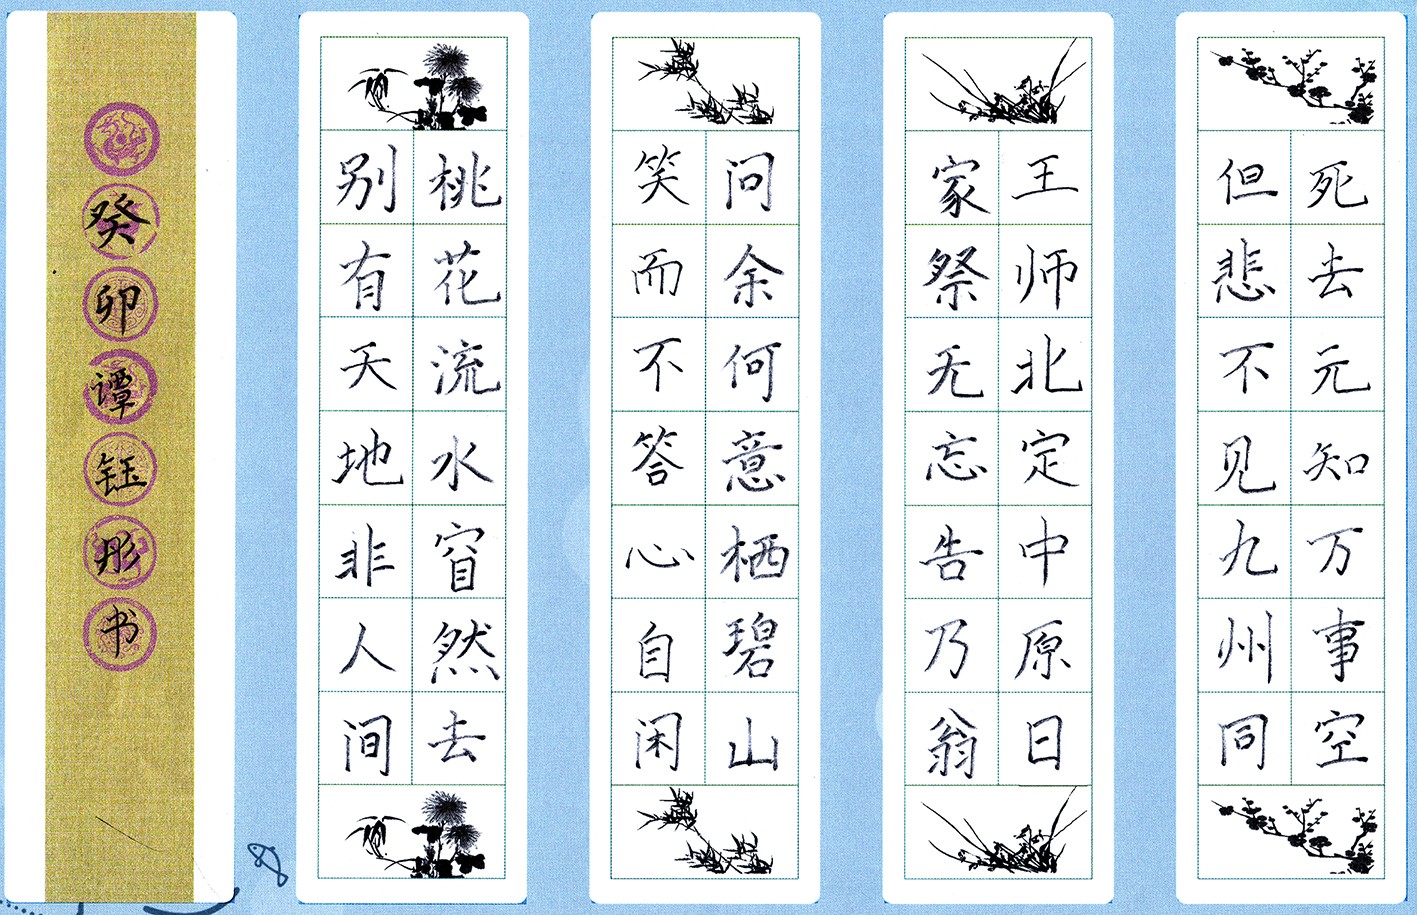 死去元知万事空
但悲不见九州同
王师北定中原日
家祭无忘告乃翁
问余何意栖碧山
笑而不答心自闲
桃花流水窅然去
别有天地非人间
癸卯谭钰彤书